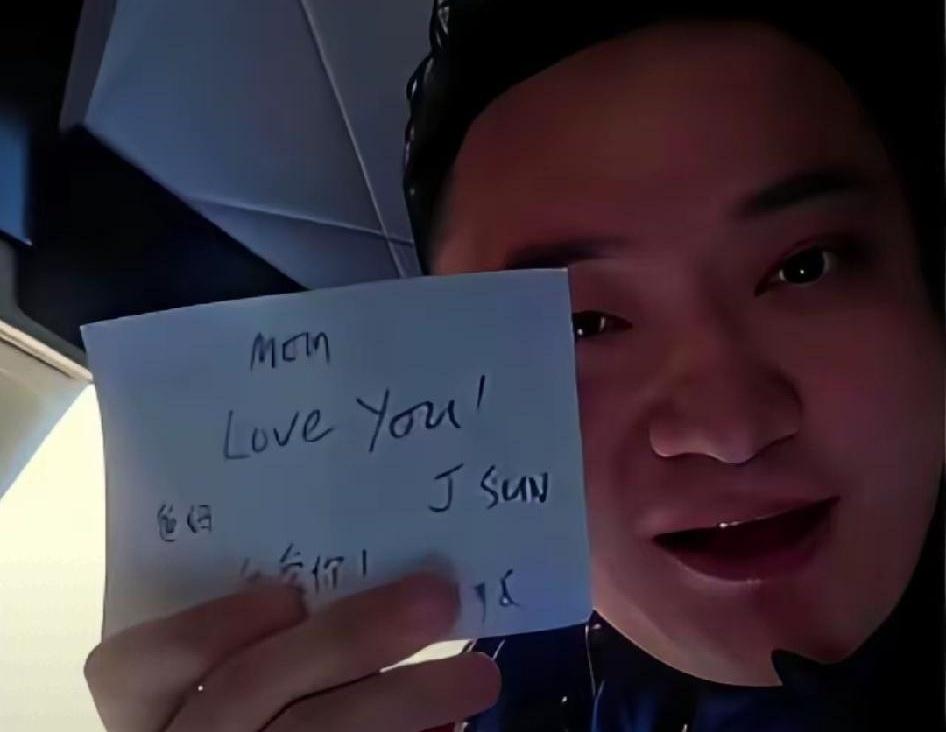 Mom
Love You!
J SUN
爱你!